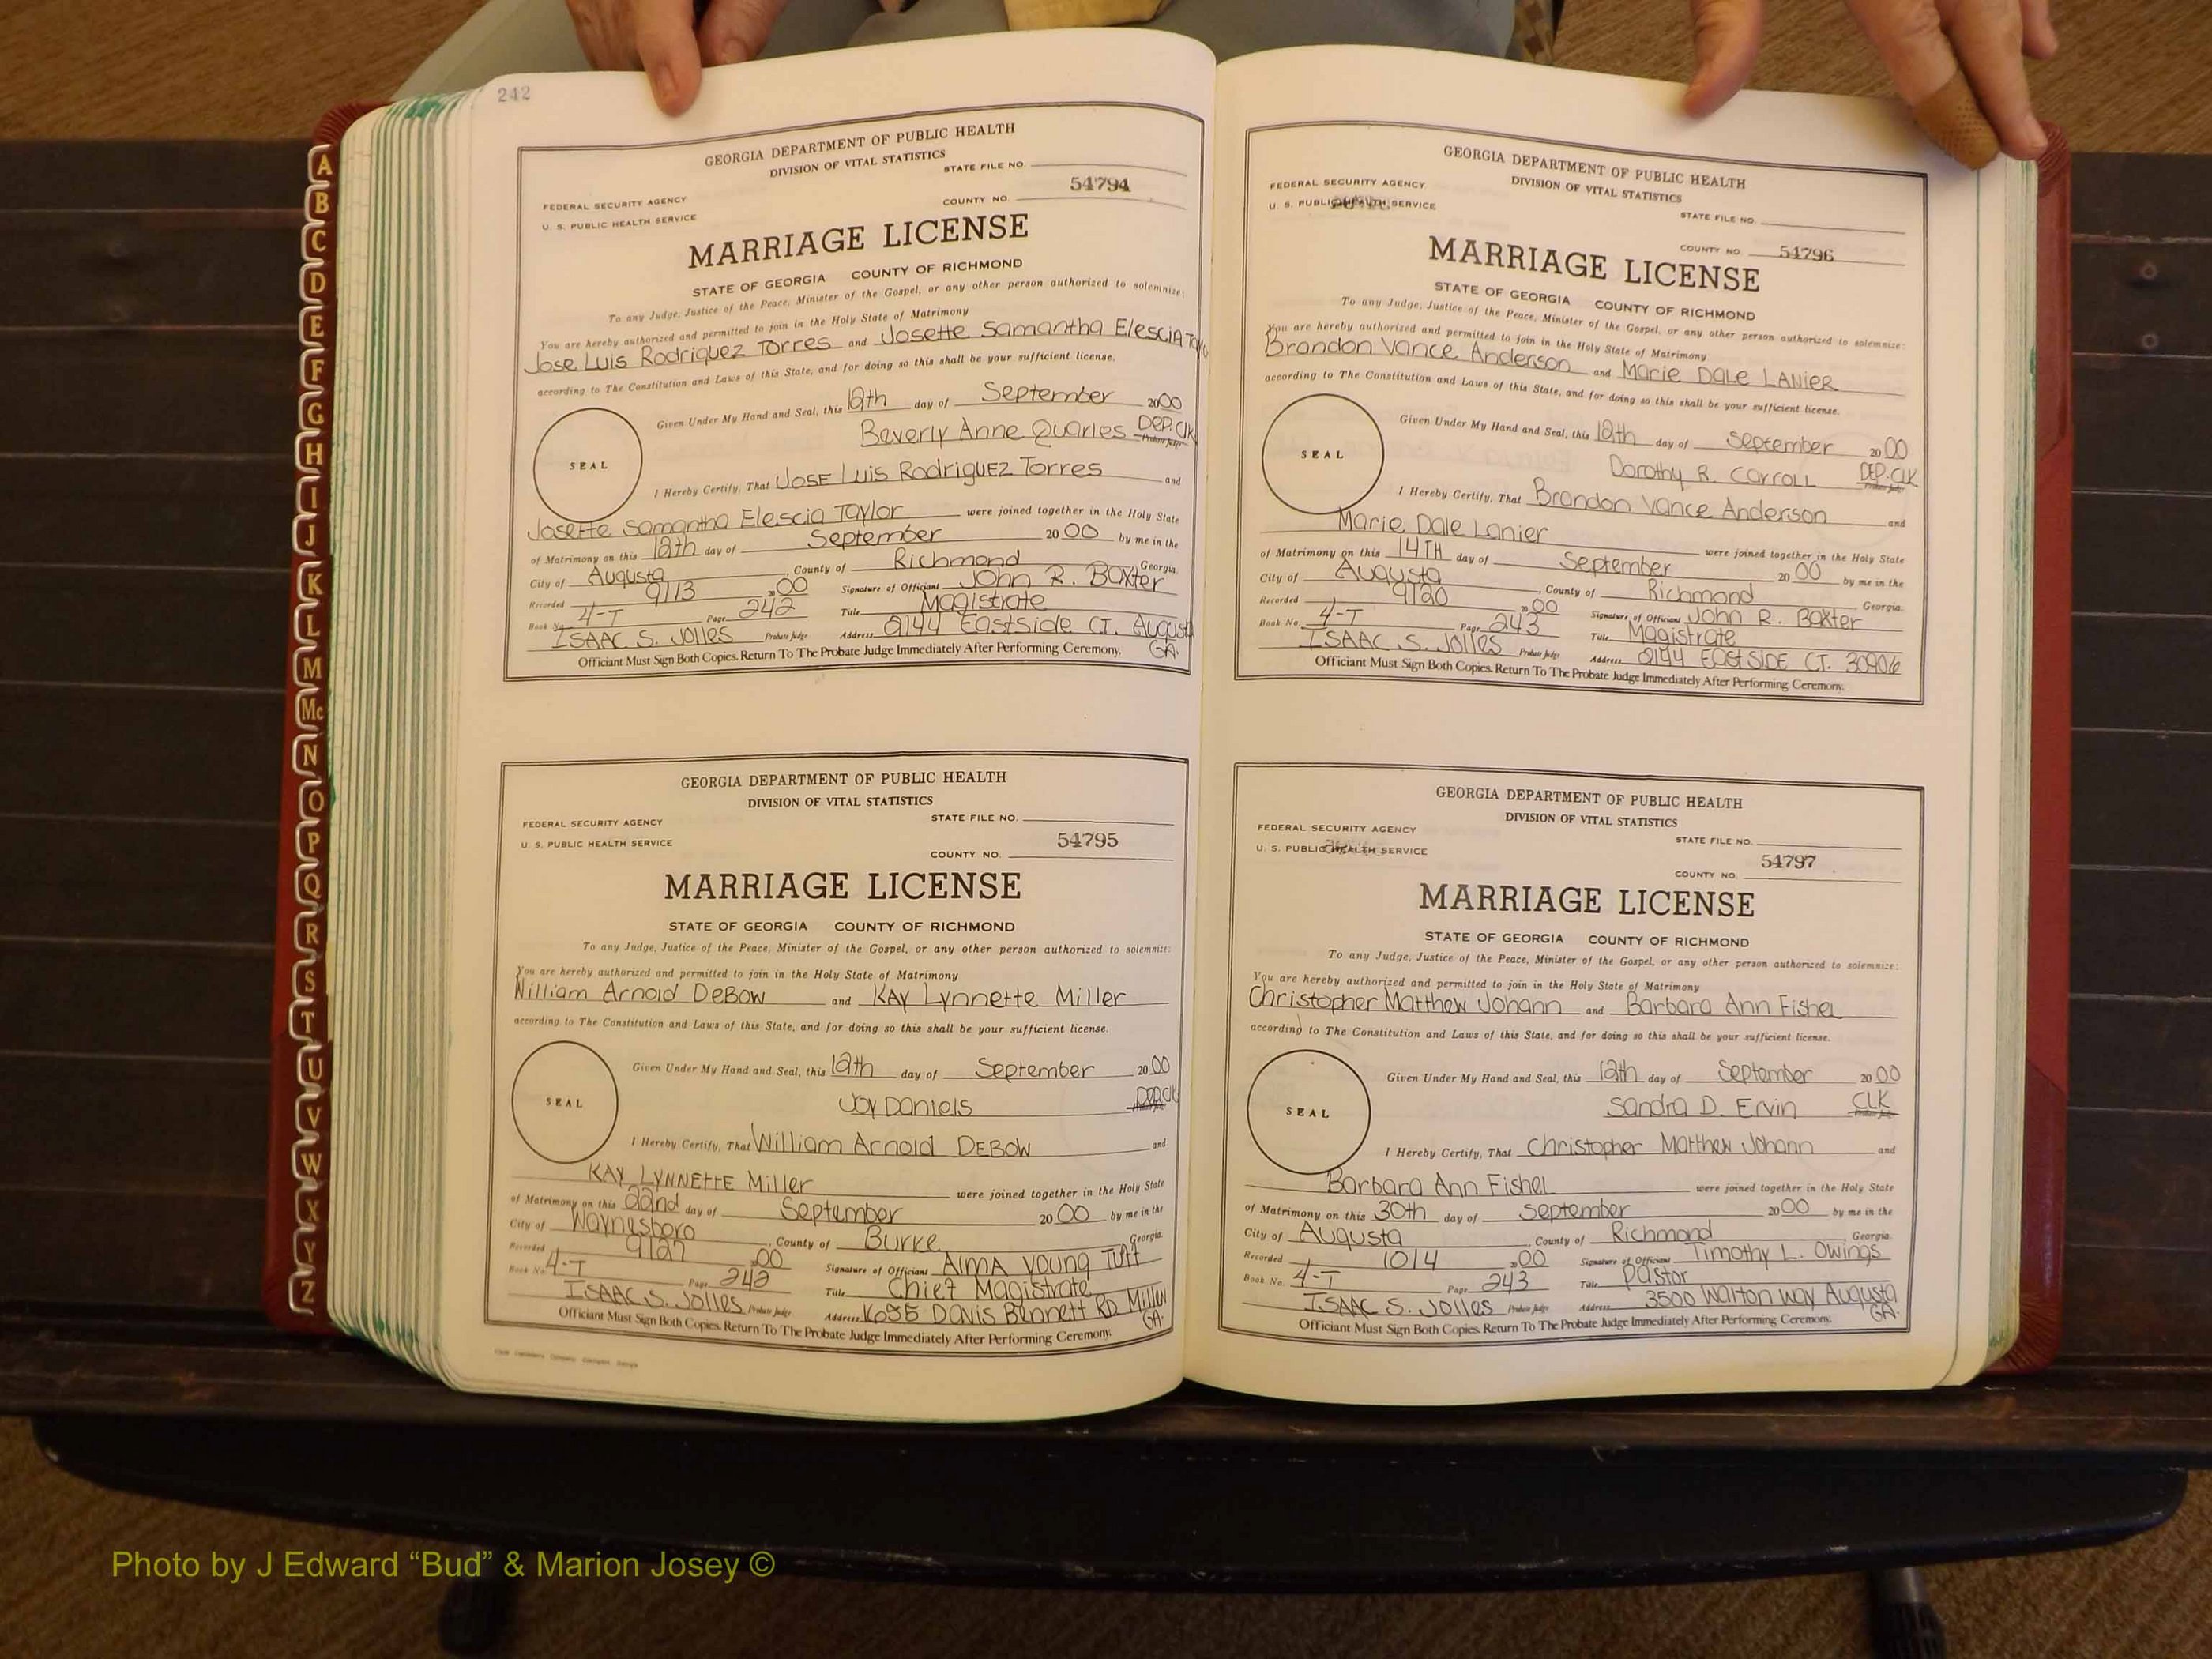 242
A
B
C
D
E
F
G
H
I
J
K
L
M
Mc
N
O
P
Q
R
S
T
U
V
W
X
Y
Z
GEORGIA DEPARTMENT OF PUBLIC HEALTH
DIVISION OF VITAL STATISTICS
STATE FILE NO.
FEDERAL SECURITY AGENCY
54794
U. S. PUBLIC HEALTH SERVICE
COUNTY NO.
MARRIAGE LICENSE
STATE OF GEORGIA COUNTY OF RICHMOND
To any Judge, Justice of the Peace, Minister of the Gospel, or any other person authorized to solemnize:
You are hereby authorized and permitted to join in the Holy State of Matrimony
Jose Luis Rodriquez Torres and Josette Samantha Elescia
according to The Constitution and Laws of this State, and for doing so this shall be your sufficient license.
Given Under My Hand and Seal, this 12th day of September 2000
Beverly Anne Quarles DEP. CLK
SEAL
I Hereby Certify, That Jose Luis Rodriguez Torres and
Josette Samantha Elescia Taylor were joined together in the Holy State
of Matrimony on this 12th day of September 2000 by me in the
City of Augusta, County of Richmond Georgia.
Recorded 9/13 2000 Signature of Officiant John R. Baxter
Book No. 4-T Page 242 Title Magistrate
ISAAC S. Jolles Probate Judge Address 2144 Eastside CT. Augusta
GA.
Officiant Must Sign Both Copies. Return To The Probate Judge Immediately After Performing Ceremony.
GEORGIA DEPARTMENT OF PUBLIC HEALTH
DIVISION OF VITAL STATISTICS
STATE FILE NO.
FEDERAL SECURITY AGENCY
54795
U. S. PUBLIC HEALTH SERVICE
COUNTY NO.
MARRIAGE LICENSE
STATE OF GEORGIA COUNTY OF RICHMOND
To any Judge, Justice of the Peace, Minister of the Gospel, or any other person authorized to solemnize:
You are hereby authorized and permitted to join in the Holy State of Matrimony
William Arnold DeBow and KAY Lynnette Miller
according to The Constitution and Laws of this State, and for doing so this shall be your sufficient license.
Given Under My Hand and Seal, this 12th day of September 2000
Joy Daniels DEP. CLK
SEAL
I Hereby Certify, That William Arnold DEBOW and
KAY LYNNETTE Miller were joined together in the Holy State
of Matrimony on this 22nd day of September 2000 by me in the
City of Waynesboro, County of Burke Georgia.
Recorded 9/27 2000 Signature of Officiant Alma Young Tutt
Book No. 4-T Page 242 Title Chief Magistrate
ISAAC S. Jolles Probate Judge Address Davis Bennett RD Millen
GA.
Officiant Must Sign Both Copies. Return To The Probate Judge Immediately After Performing Ceremony.
GEORGIA DEPARTMENT OF PUBLIC HEALTH
DIVISION OF VITAL STATISTICS
FEDERAL SECURITY AGENCY
U. S. PUBLIC HEALTH SERVICE
STATE FILE NO.
COUNTY NO. 54796
MARRIAGE LICENSE
STATE OF GEORGIA COUNTY OF RICHMOND
To any Judge, Justice of the Peace, Minister of the Gospel, or any other person authorized to solemnize:
You are hereby authorized and permitted to join in the Holy State of Matrimony
Brandon Vance Anderson and Marie Dale LANIER
according to The Constitution and Laws of this State, and for doing so this shall be your sufficient license.
Given Under My Hand and Seal, this 12th day of September 2000
Dorothy R. Carroll DEP. CLK
SEAL
I Hereby Certify, That Brandon Vance Anderson and
Marie Dale Lanier were joined together in the Holy State
of Matrimony on this 14TH day of September 2000 by me in the
City of Augusta, County of Richmond Georgia.
Recorded 9/20 2000 Signature of Officiant John R. Baxter
Book No. 4-T Page 243 Title Magistrate
ISAAC S. Jolles Probate Judge Address 2144 EASTSIDE CT. 30906
Officiant Must Sign Both Copies. Return To The Probate Judge Immediately After Performing Ceremony.
GEORGIA DEPARTMENT OF PUBLIC HEALTH
DIVISION OF VITAL STATISTICS
FEDERAL SECURITY AGENCY
STATE FILE NO.
U. S. PUBLIC HEALTH SERVICE
54797
COUNTY NO.
MARRIAGE LICENSE
STATE OF GEORGIA COUNTY OF RICHMOND
To any Judge, Justice of the Peace, Minister of the Gospel, or any other person authorized to solemnize:
You are hereby authorized and permitted to join in the Holy State of Matrimony
Christopher Matthew Johann and Barbara Ann Fishel
according to The Constitution and Laws of this State, and for doing so this shall be your sufficient license.
Given Under My Hand and Seal, this 12th day of September 2000
Sandra D. Ervin CLK
SEAL
I Hereby Certify, That Christopher Matthew Johann and
Barbara Ann Fishel were joined together in the Holy State
of Matrimony on this 30th day of September 2000 by me in the
City of Augusta, County of Richmond Georgia.
Recorded 10/4 2000 Signature of Officiant Timothy L. Owings
Book No. 4-T Page 243 Title Pastor
ISAAC S. Jolles Probate Judge Address 3500 Walton Way Augusta
GA.
Officiant Must Sign Both Copies. Return To The Probate Judge Immediately After Performing Ceremony.
Photo by J Edward “Bud” & Marion Josey ©